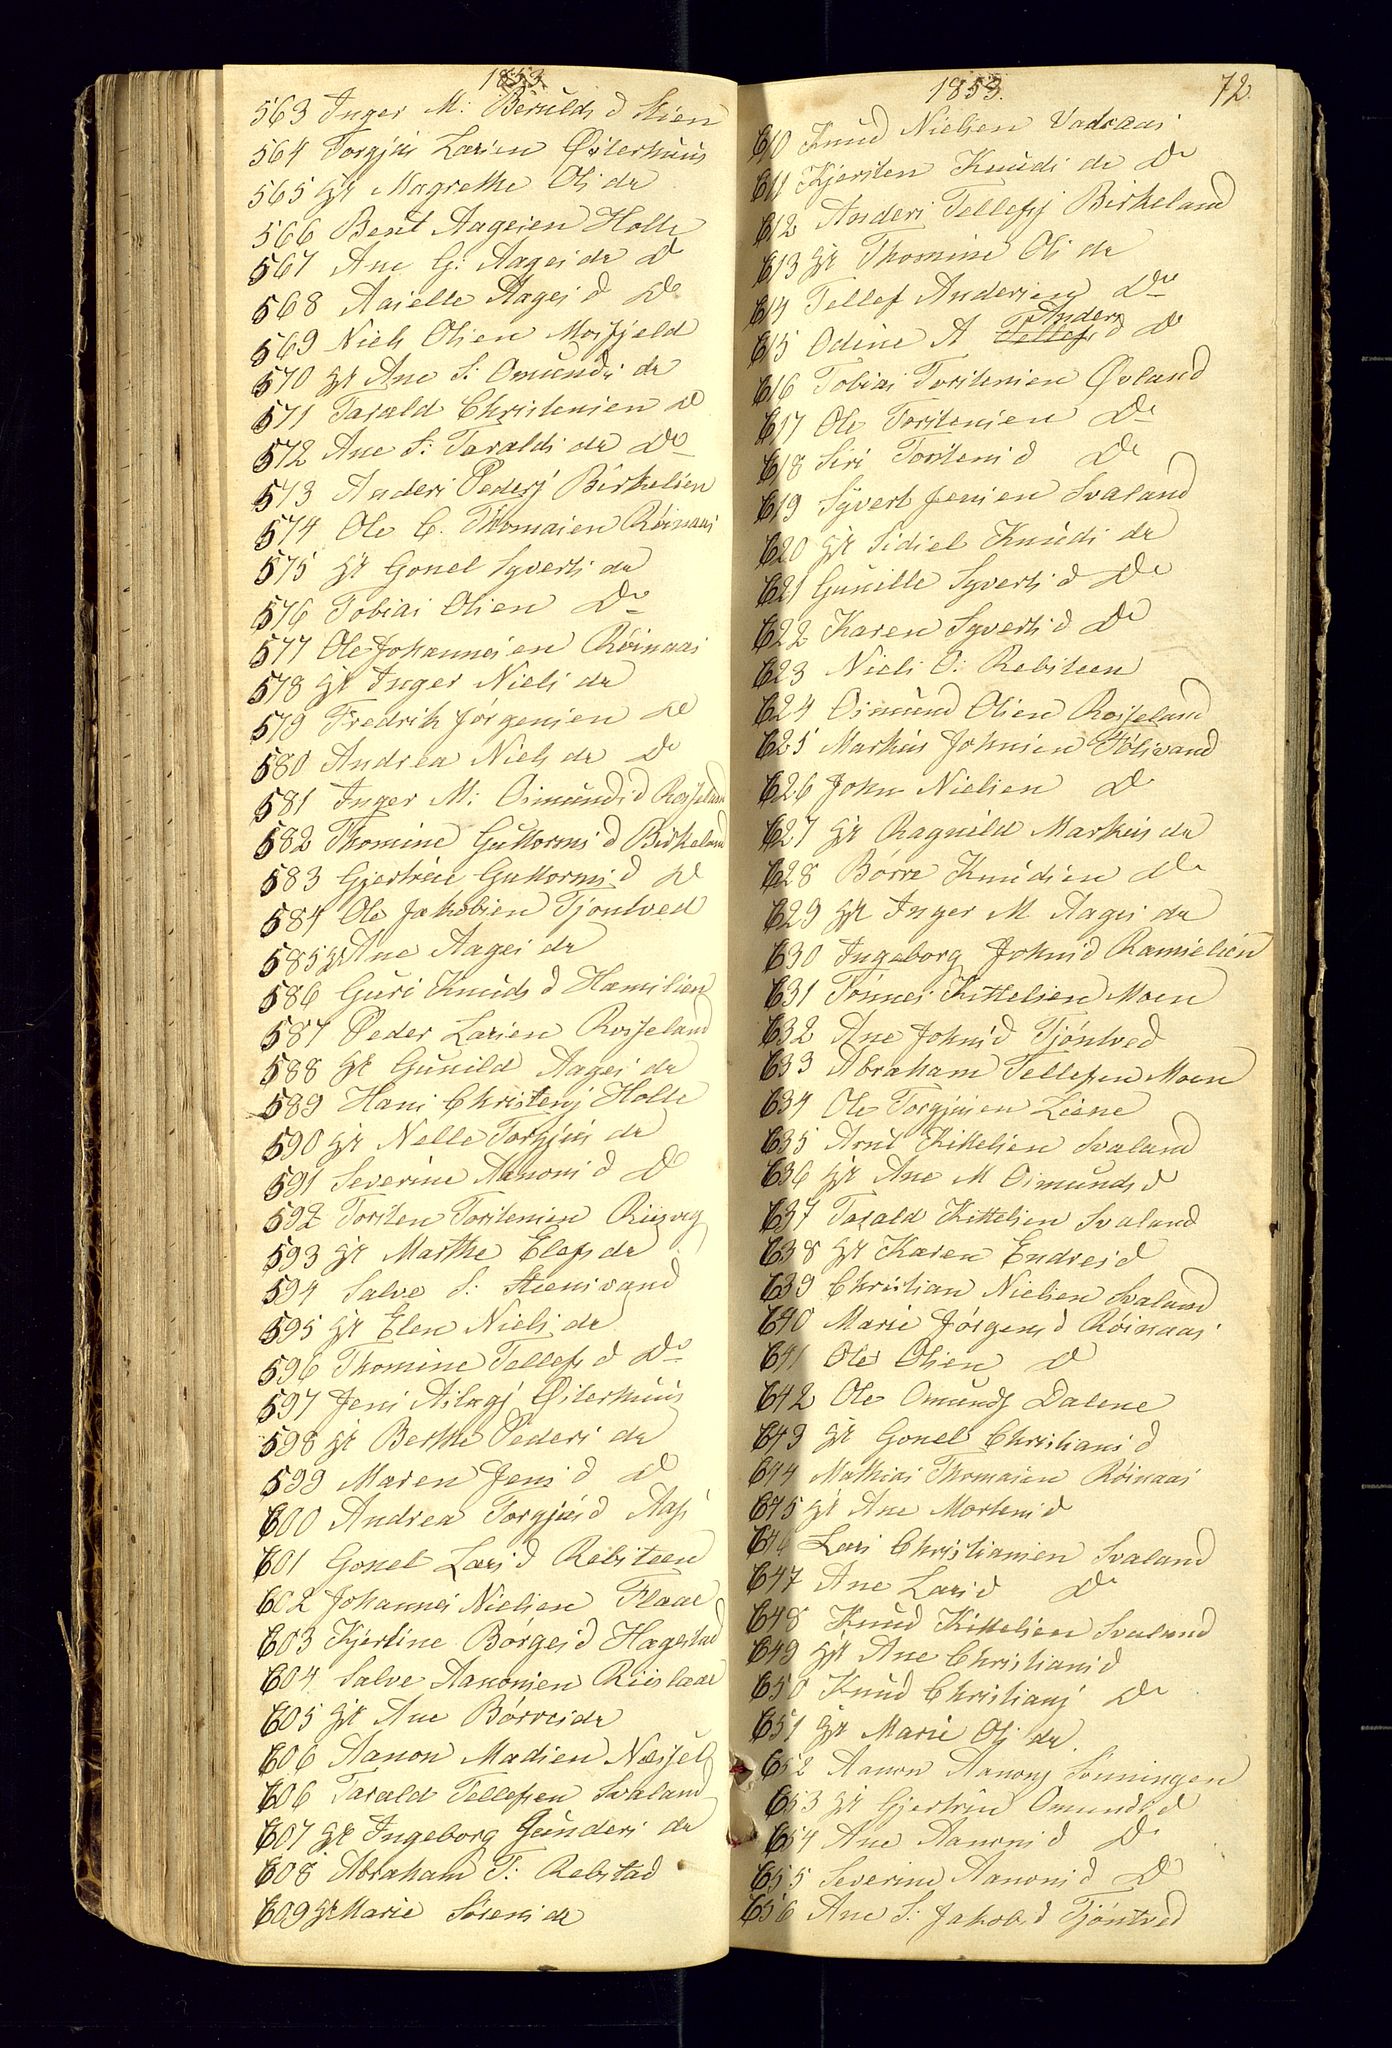 1853.
563 Inger M: Berulds d Stien
564 Torgjus Larsen Østerhuus
565 Hr Magrethe Ols dr
566 Bent Aagesen Holte
567 Ane G: Aages dr Do
568 Aaselle Aages d Do
569 Niels Olsen Mosfjeld
570 Hr Ane S: Omunds dr
571 Tarald Christensen Do
572 Ane S: Taralds dr Do
573 Anders Peders Birkelien
574 Ole C. Thomasen Röinaas
575 Hr Gonel Syverts dr
576 Tobias Olsen Do
577 Ole Johannesen Röinaas
578 Hr Inger Niels dr
579 Fredrik Jörgensen Do
580 Andrea Niels dr Do
581 Inger M: Osmunds d Rosseland
582 Thomine Guttorms d Birkeland
583 Gjertrue Guttorms d Do
584 Ole Jakobsen Tjöntved
585 Hr Ane Aages dr
586 Guri Knuds d Hæmslien
587 Peder Larsen Rosseland
588 Hr Gunild Aages dr
589 Hans Christens Holte
590 Hr Nelle Torgjus dr
591 Severine Aanons d Do
592 Torsten Torstensen Riisveg
593 Hr Marthe Elefs dr
594 Salve S: Steensvand
595 Hr Elen Niels dr
596 Thomine Tellefs d Do
597 Jens Aslags Østerhuus
598 Hr Berthe Peders dr
599 Maren Jens d Do
600 Andrea Torgjus d Aas
601 Gonel Lars d Rebsteen
602 Johannes Nielsen Flaae
603 Kjerline Börges d Hægestad
604 Salve Aanonsen Riislaae
605 Hr Ane Börres dr
606 Aanon Madsen Næssel
606 Tarald Tellefsen Svaland
607 Hr Ingeborg Gunders dr
608 Abraham T: Rebstad
609 Hr Marie Sörens dr
1853. 72.
610 Knud Nielsen Vadraas
611 Kjersten Knuds dr Do
612 Anders Tellefs Birkeland
613 Hr Thomine Ols dr
614 Tellef Andersen Do
Anders
615 Odine A Tellefs d Do
616 Tobias Torstensen Øvland
617 Ole Torstensen Do
618 Siri Torstens d Do
619 Syvert Jensen Svaland
620 Hr Sidsel Knuds dr
621 Gunille Syverts d Do
622 Karen Syverts d Do
623 Niels O: Rebsteen
624 Osmund Olsen Rosseland
625 Markus Johnsen Hölsvand
626 John Nielsen Do
627 Hr Ragnild Markus dr
628 Börre Knudsen Do
629 Hr Inger M Aages dr
630 Ingeborg Johns d Ramselien
631 Tönnes Kittelsen Moen
632 Ane Johns d Tjöntved
633 Abraham Tellefsen Moen
634 Ole Torgjusen Liene
635 Arnt Kittelsen Svaland
636 Hr Ane M Osmunds d
637 Tarald Kittelsen Svaland
638 Hr Karen Endres d
639 Christian Nielsen Svaland
640 Marie Jörgens d Röinaas
641 Ole Olsen Do
642 Ole Omunds Dalene
643 Hr Gonel Christians d
644 Mathias Thomasen Röinaas
645 Hr Ane Mortens d
646 Lars Christiansen Svaland
647 Ane Lars d Do
648 Knud Kittelsen Svaland
649 Hr Ane Christians d
650 Knud Christians Do
651 Hr Marie Ols dr
652 Aanon Aanons Sönningen
653 Hr Gjertrue Omunds d
654 Ane Aanons d Do
655 Severine Aanons d Do
656 Ane S: Jakobs d Tjöntved